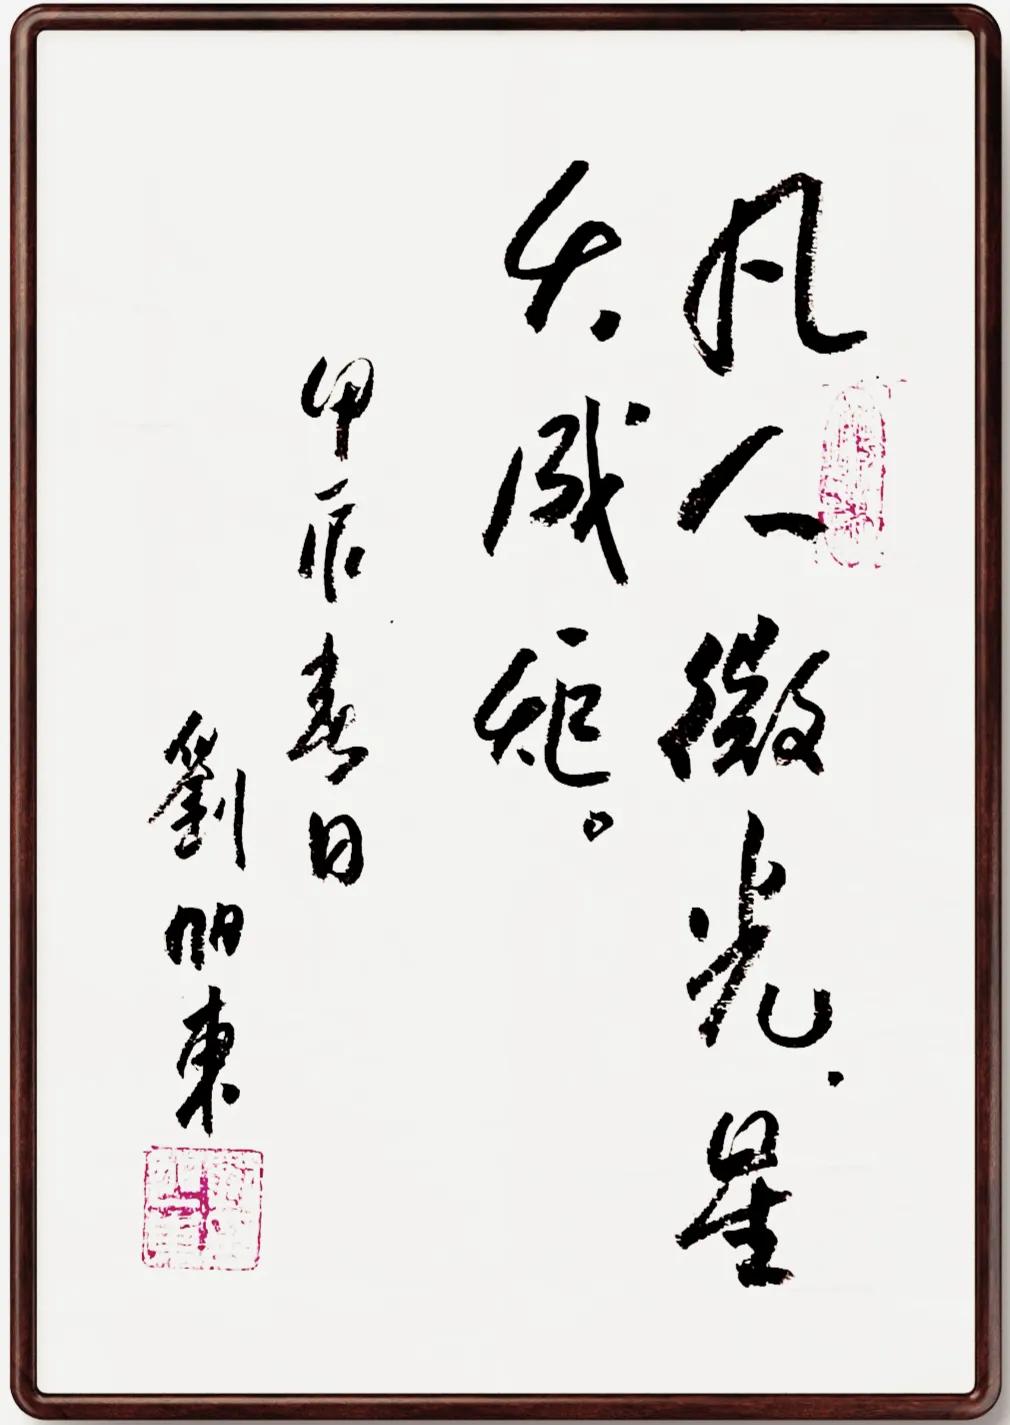 凡人微光，星
火成炬。
甲辰春日
劉朋東